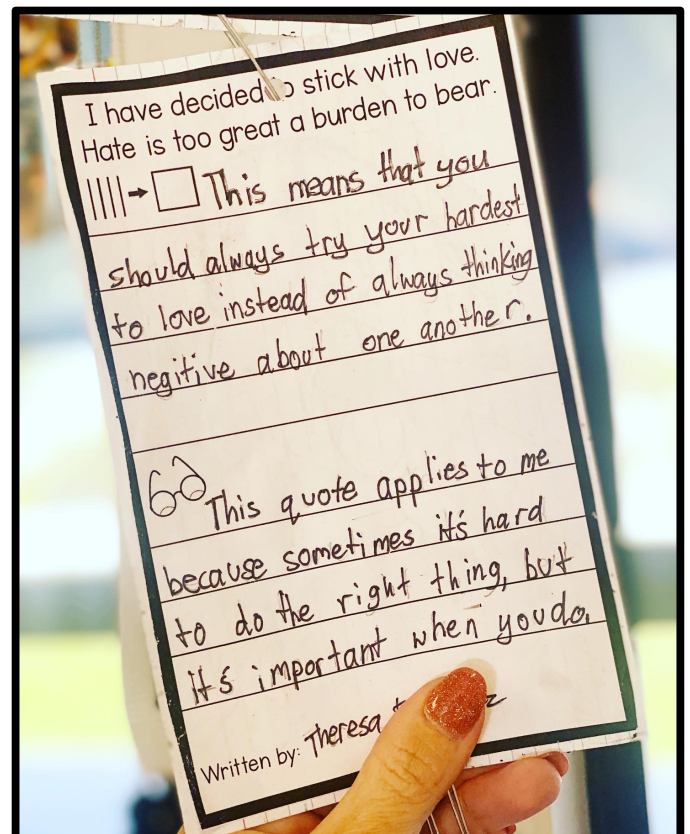 I have decided to stick with love.
Hate is too great a burden to bear.
This means that you
should always try your hardest
to love instead of always thinking
negitive about one another.
This quote applies to me
because sometimes it's hard
to do the right thing, but
it's important when you do.
Written by: Theresa